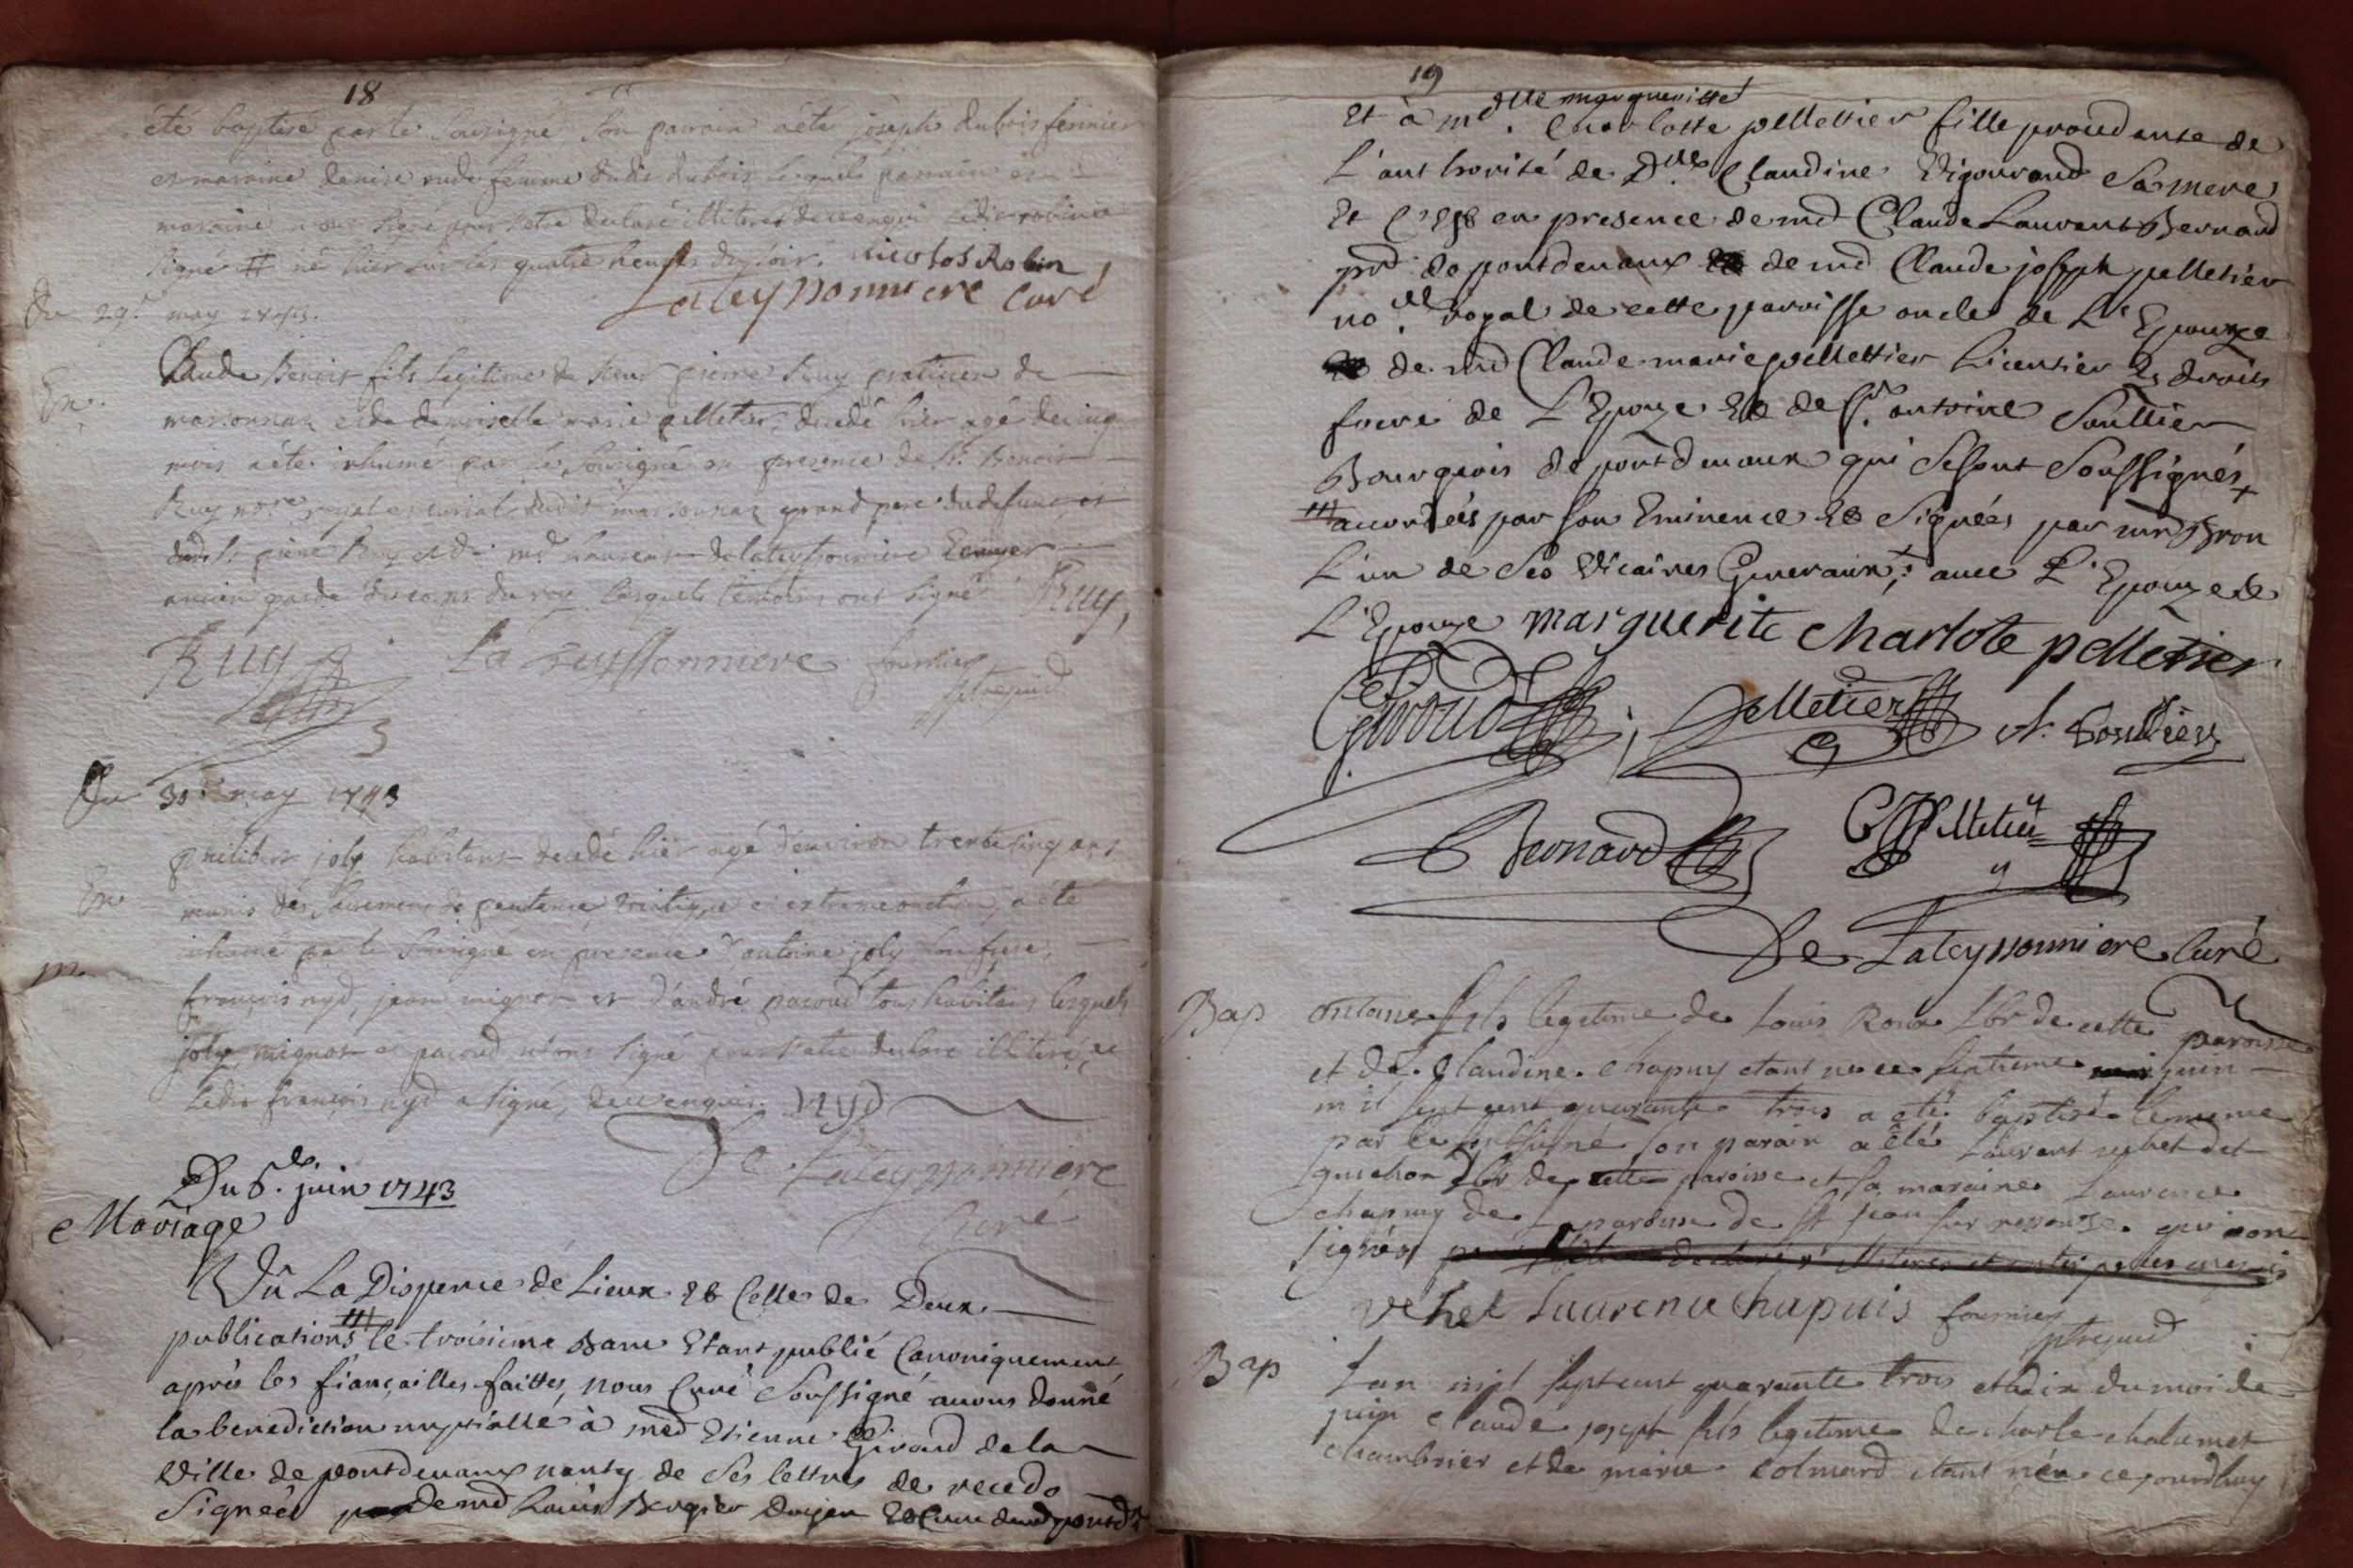 18
été baptisé par le Sousigné, Son parrain a été joseph dubois fermier
et maraine denise rude femme dudit dubois lesquels parrain et
maraine n'ont signé pour s'etre declaré illiteres de ce enquis ledit robin a
signé # né hier sur les quatre heures du soir. nicolos Robin
Lateyssonniere Curé
Du 29e may 1743.
En.
Claude Benoit fils legitime de sieur pierre Ruy praticien de
marsonnax et de demoiselle marie pelletier, decedé hier agé de cinq
mois a été inhumé par le Sousigné en presence de Sr. Benoit
Ruy nore royal et curial dudit marsonnax grand pere du defunct et
dudt Sr. pierre Ruy et de md Laurent de lateyssonniere Ecuyer
ancien garde du corps du roy lesquels temoins ont signé Ruy,
Ruy Lateyssonniere fournier
ptre
Du 30e may 1743
philibert joly habitant decedé hier agé d'environ trente cinq ans
En
munis des Sacremens de penitence viatique et extremeonction, a été
inhumé par le Sousigné en presence d'antoine joly Son frere,
m.
françois nyd, jean mignot et d'andré pacoud tous habitans lesquels
joly, mignot et pacoud n'ont signé pour s'etre declaré illiteré, et
ledit françois nyd a signé, de ce enquis. nyd
De Lateyssonniere
Curé
Du 6.e juin 1743
Mariage
Vû La Dispence de Lieux Et Celle de Deux
publications le troisieme Banc Etant publié Canoniquement
après les fiançailles faittes, nous Curé Soussigné avons donné
la benediction nuptialle à md Etienne Giroud de la
Ville de pontdevaux nanty de Ses lettres de recedo
Signées de md Louis Bergier doyen Et Curé dud pontdx
19
Et à md.elle margueritte Charlotte pellettier fille proudante de
L'authorité de D.elle Claudine Vigouroud Sa mere
Et C en presence de md Claude Laurent Bernard
prd de pontdevaux Et de md Claude joseph pelletier
no.re royal de cette parroisse oncle de L'Epouze
de md Claude marie pellettier Licentier Es droits
frere de L'Epouze Et de Sr. antoine Soullier
Bourgeois de pontdevaux qui Se sont Soussignés +
accordées par Son Eminence Et Signées par md Bron
L'un de Ses Vicaires Generaux + avec L'Epouze et
L'Epouze marguerite charlote pelletier
Giroud Pelletier A. Soullier
Bernard CJPelletier
De Lateyssonniere Curé
Bap
antoine fils legitime de Louis Roux Lbr de cette paroisse
et de Claudine chapuy etant né ce septieme juin
mil sept cent quarante trois a eté baptisé le meme
par le soussigné son parain a été Laurent vebet dit
guichon Lbr de cette paroisse et sa maraine Laurence
chapuy de la paroisse de St jean sur reyssouze qui ont
signés
vebet Laurence Chapuis fournier
ptre
Bap
L'an mil sept cent quarante trois et a dix du moi de
juin Claude joseph fils legitime de charle chalumet
chambrier et de marie Colmard etant née ce jourdhuy